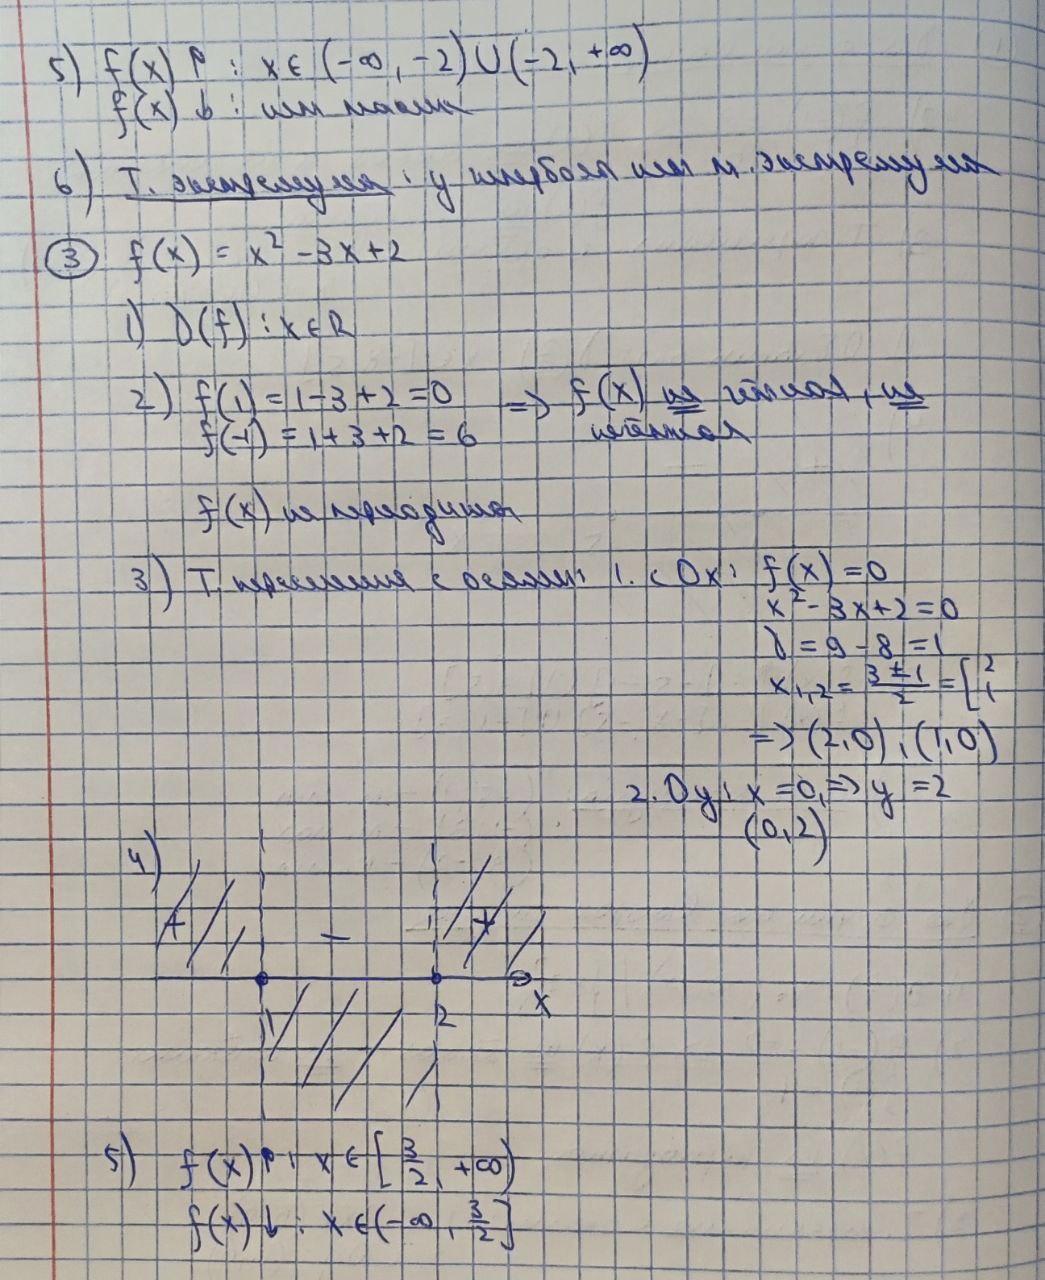 5) f(x) ↑ : x ∈ (-∞, -2) ∪ (-2, +∞)
f(x) ↓ : ни
6) Т. экстремума: у гиперболы нет т. экстремума
③ f(x) = x² - 3x + 2
1) D(f) : x ∈ R
2) f(1) = 1 - 3 + 2 = 0 => f(x) не чётная, не
f(-1) = 1 + 3 + 2 = 6 нечётная
f(x) не периодична
3) Т. пересечения с осями: 1. с Ox: f(x) = 0
x² - 3x + 2 = 0
D = 9 - 8 = 1
x₁,₂ = (3 ± 1)/2 = [2 1
=> (2,0), (1,0)
2. Oy: x = 0, => y = 2
(0,2)
4)
+ - +
1 2 x
5) f(x) ↑ : x ∈ [3/2, +∞)
f(x) ↓ : x ∈ (-∞, 3/2]